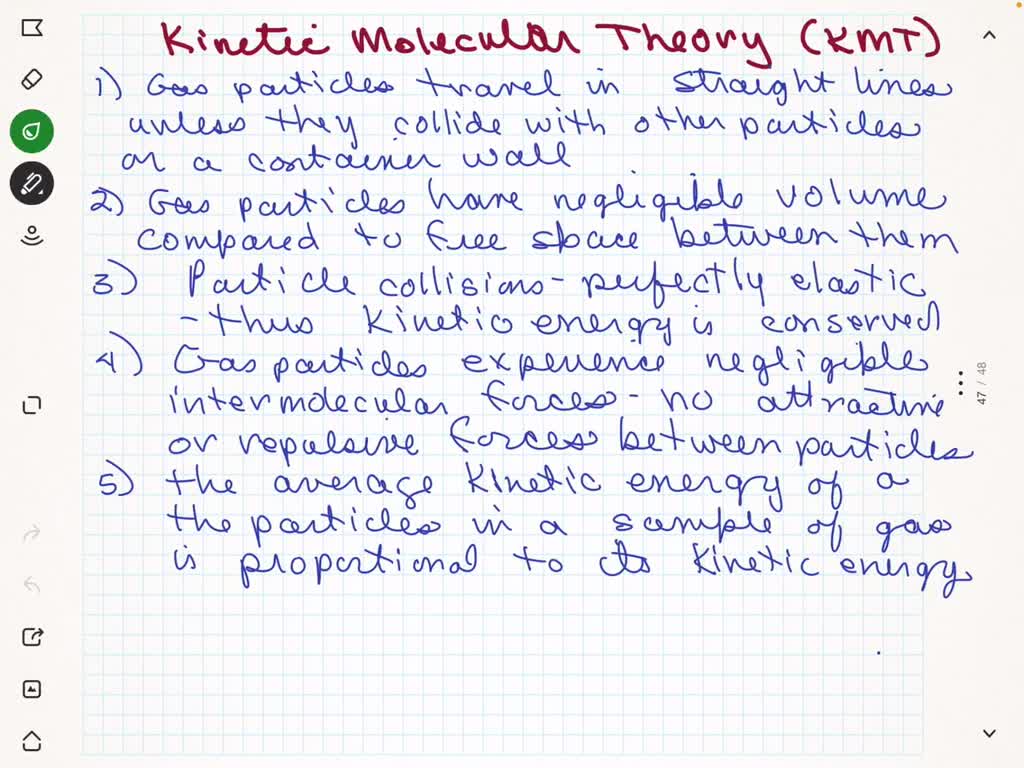 Kinetic Molecular Theory (KMT)
1) Gas particles travel in straight lines
unless they collide with other particles
or a container wall
2) Gas particles have negligible volume
compared to free space between them
3) Particle collisions - perfectly elastic
- thus kinetic energy is conserved
4) Gas particles experience negligible
intermolecular forces - no attractive
or repulsive forces between particles
5) the average kinetic energy of a
the particles in a sample of gas
is proportional to its kinetic energy
47 / 48